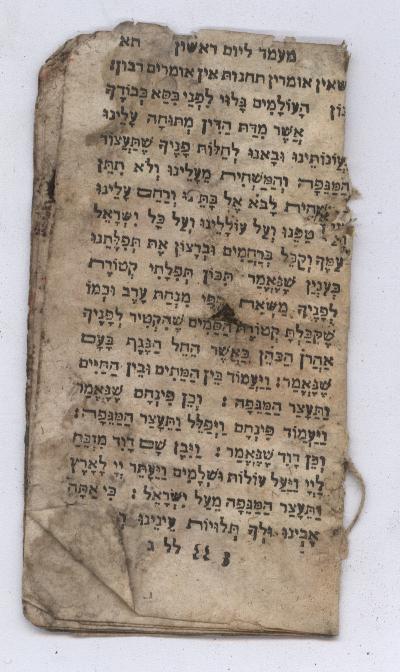 מעמד ליום ראשון תא
שאין אומרין תחנות אין אומרים רבון:
הָעוֹלָמִים גָּלוּי לִפְנֵי כִּסֵּא כְבוֹדֶךָ
אֲשֶׁר מִדַּת הַדִּין מְתוּחָה עָלֵינוּ
וּבָאנוּ לְחַלּוֹת פָּנֶיךָ שֶׁתַּעֲצוֹר
הַמַּגֵּפָה וְהַמַּשְׁחִית מֵעָלֵינוּ וְלֹא תִתֵּן
לָבֹא אֶל וְרַחֵם עָלֵינוּ
טַפֵּנוּ וְעַל עוֹלָלֵינוּ וְעַל כָּל יִשְׂרָאֵל
עַמֶּךָ וְקַבֵּל בְּרַחֲמִים וּבְרָצוֹן אֶת תְּפִלָּתֵנוּ
כְּעִנְיַן שֶׁנֶּאֱמַר תִּכּוֹן תְּפִלָּתִי קְטוֹרֶת
לְפָנֶיךָ מַשְׂאֵת מִנְחַת עָרֶב וּכְמוֹ
שֶׁקִּבַּלְתָּ קְטוֹרֶת הַסַּמִּים שֶׁהִקְטִיר לְפָנֶיךָ
אַהֲרֹן הַכֹּהֵן כַּאֲשֶׁר הֵחֵל הַנֶּגֶף בָּעָם
שֶׁנֶּאֱמַר: וַיַּעֲמוֹד בֵּין הַמֵּתִים וּבֵין הַחַיִּים
וַתֵּעָצַר הַמַּגֵּפָה: וְכֵן פִּינְחָס שֶׁנֶּאֱמַר
וַיַּעֲמוֹד פִּינְחָס וַיְפַלֵּל וַתֵּעָצַר הַמַּגֵּפָה:
וְכֵן דָּוִד שֶׁנֶּאֱמַר: וַיִּבֶן שָׁם דָּוִד מִזְבֵּחַ
לַיְיָ וַיַּעַל עוֹלוֹת וּשְׁלָמִים וַיֵּעָתֵר יְיָ לָאָרֶץ
וַתֵּעָצַר הַמַּגֵּפָה מֵעַל יִשְׂרָאֵל: כִּי אַתָּה
אָבִינוּ וּלְךָ תְּלוּיוֹת עֵינֵינוּ